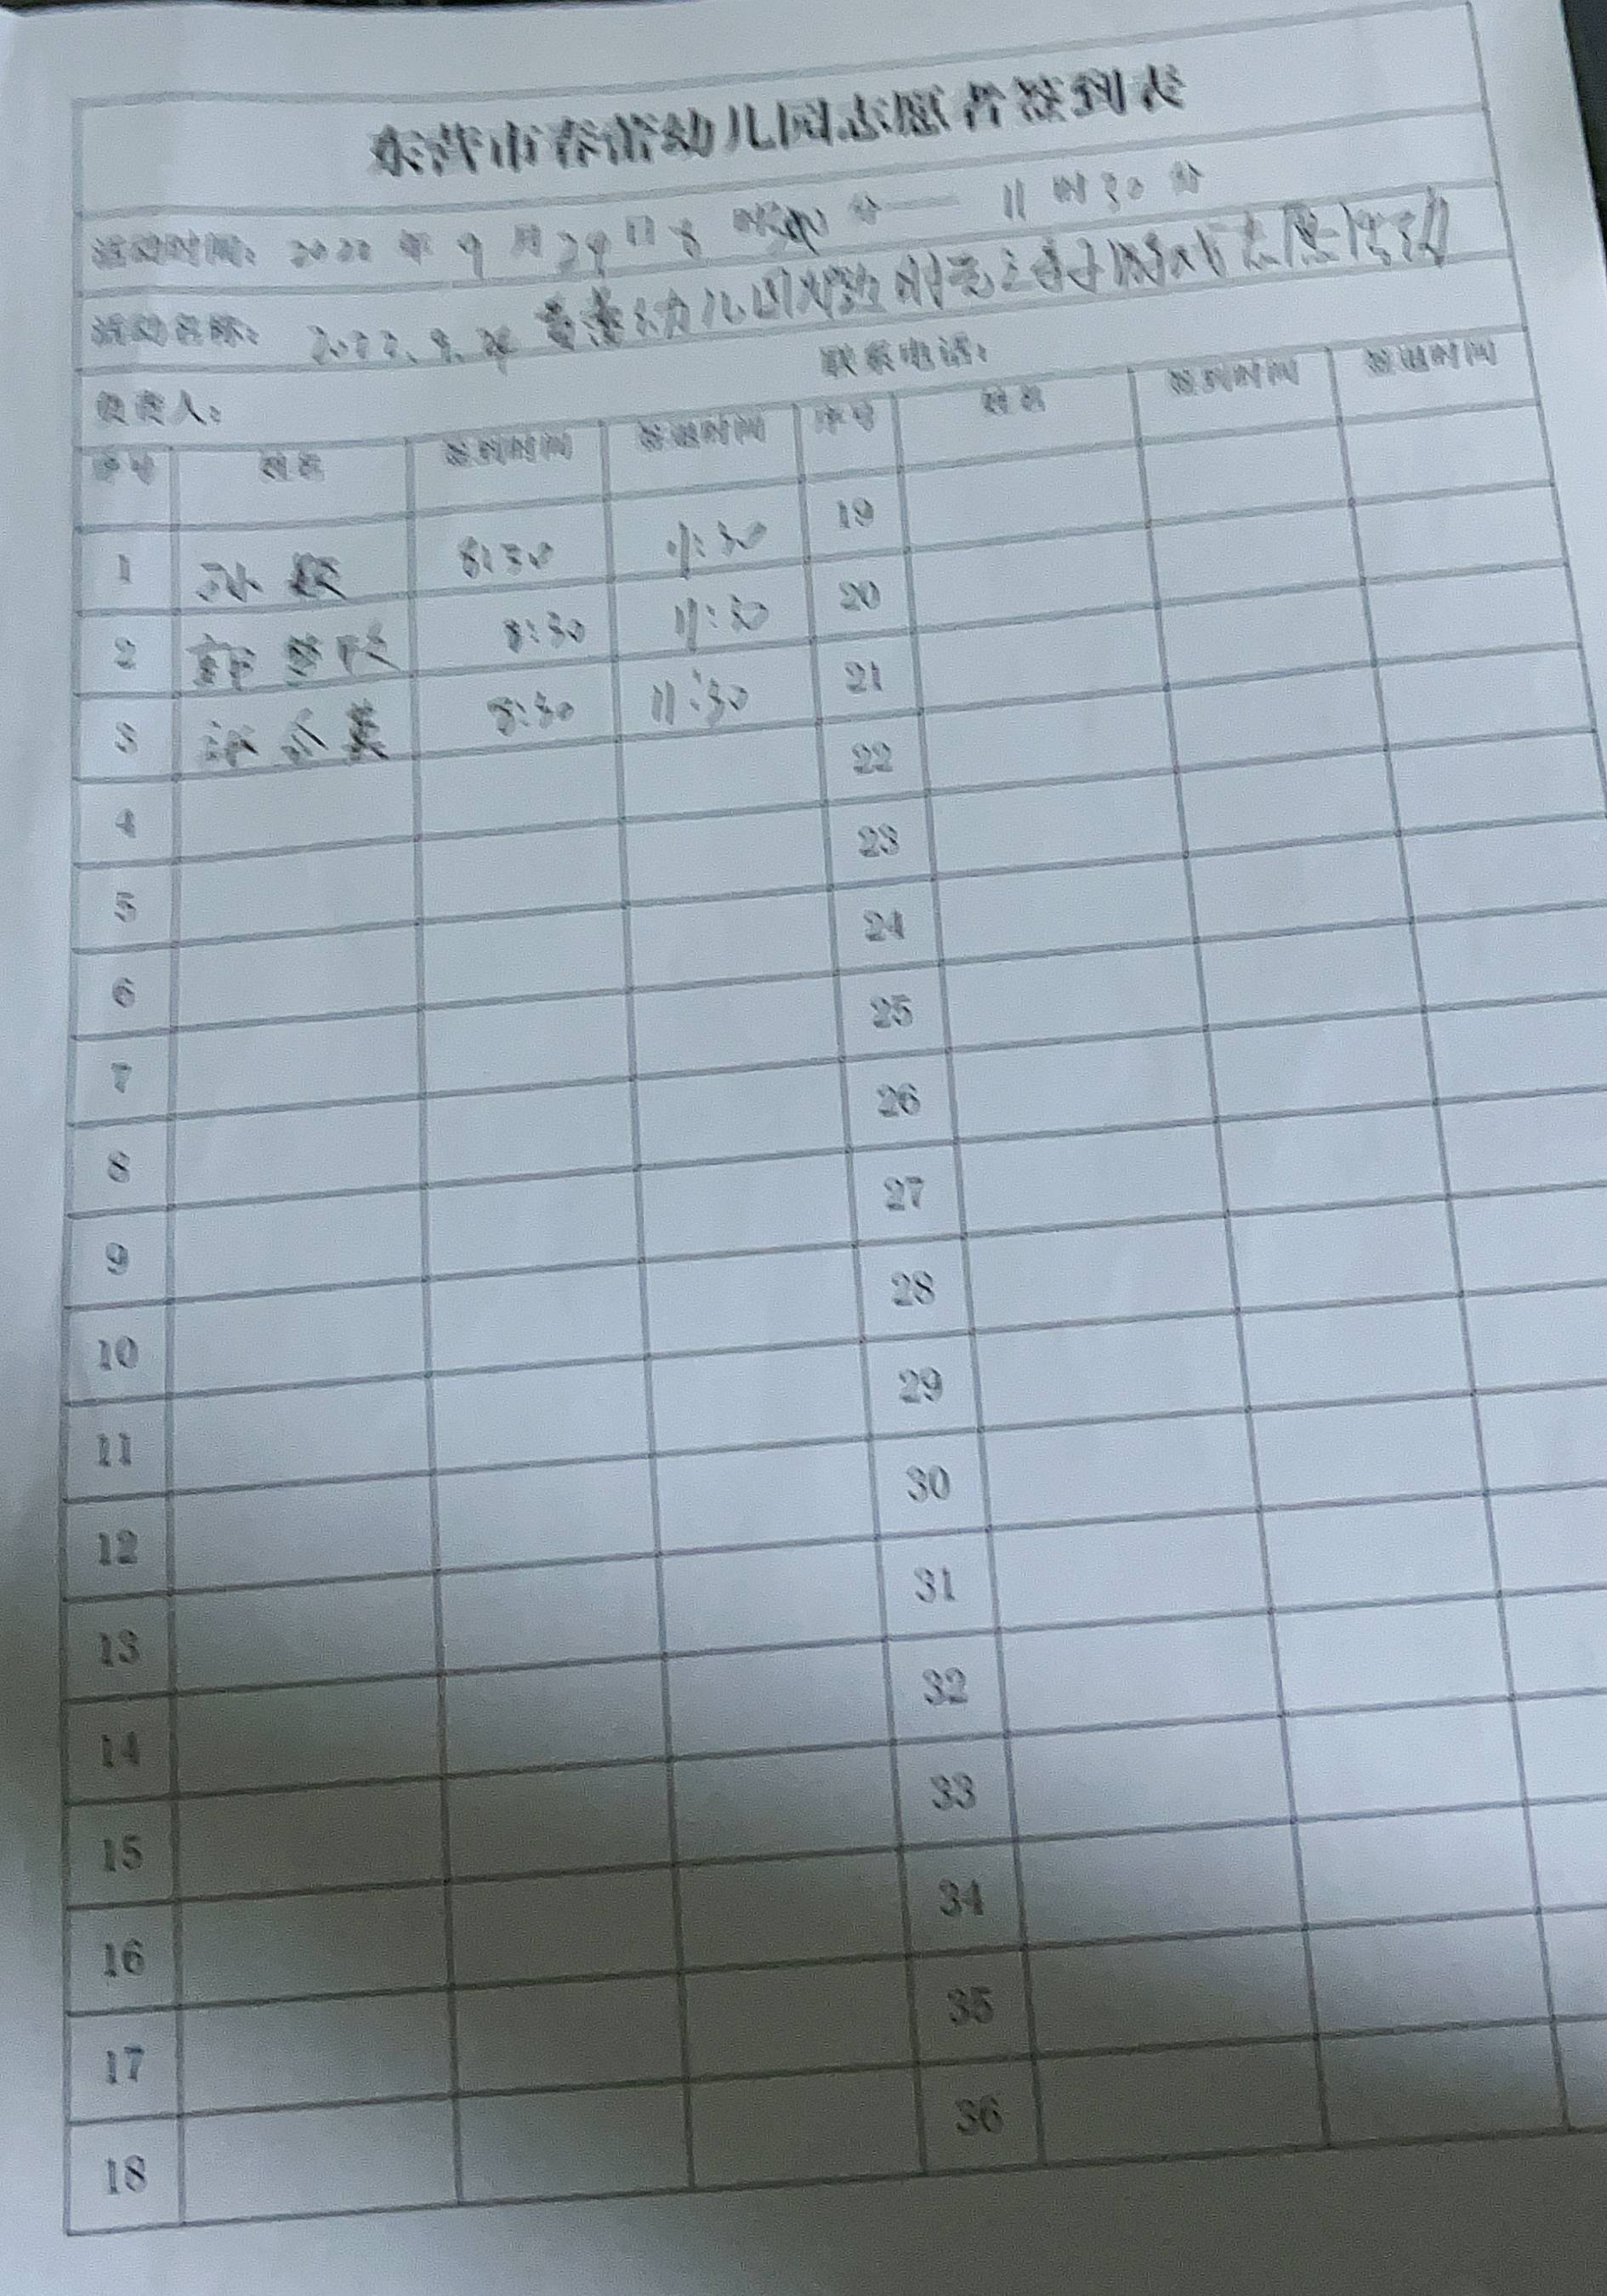 东营市春蕾幼儿园志愿者签到表
活动时间：2022年9月24日8时30分——11时30分
活动名称：2022.9.24 春蕾幼儿园 志愿活动
负责人： 联系电话：
序号 姓名 签到时间 签退时间 序号 姓名 签到时间 签退时间
1 孙 8:30 11:30 19
2 8:30 11:30 20
3 8:30 11:30 21
4 22
5 23
6 24
7 25
8 26
9 27
10 28
11 29
12 30
13 31
14 32
15 33
16 34
17 35
18 36